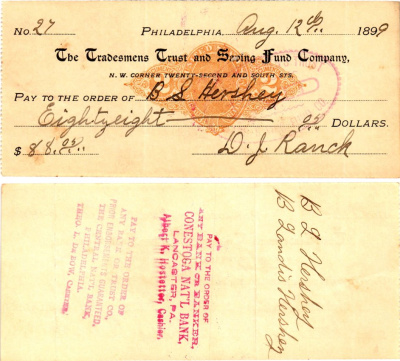 No. 27 PHILADELPHIA, Aug. 12th 1899
The Tradesmens Trust and Saving Fund Company,
N. W. CORNER TWENTY-SECOND AND SOUTH STS.
PAY TO THE ORDER OF B S Hershey
Eightyeight DOLLARS.
$ 88.00 D. J. Ranck
PAY TO THE ORDER OF
ANY BANK OR TRUST CO.
THE CENTRAL NAT'L BANK,
PHILADELPHIA.
THEO. L. DE BOW, CASHIER.
PAY TO THE ORDER OF
ANY BANK OR BANKER,
CONESTOGA NAT'L BANK,
LANCASTER, PA.
Albert K. Hostetter, Cashier.
B L Hershey
B Landis Hershey